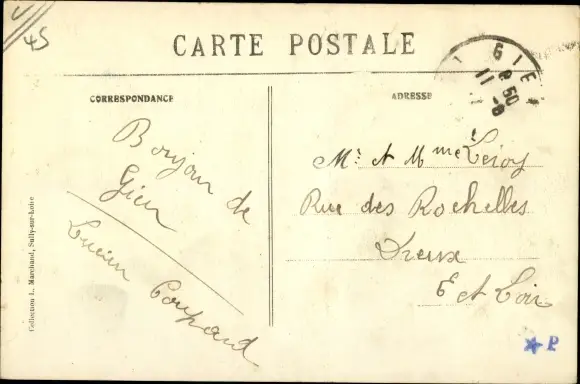 45
CARTE POSTALE
GIE
8 50
11 -8
CORRESPONDANCE
ADRESSE
Bonjour de
Gien
Lucien
Mr et Mme Leroy
Rue des Rochelles
Dreux
E et Loir
Collection L. Marchand, Sully-sur-Loire
★ P